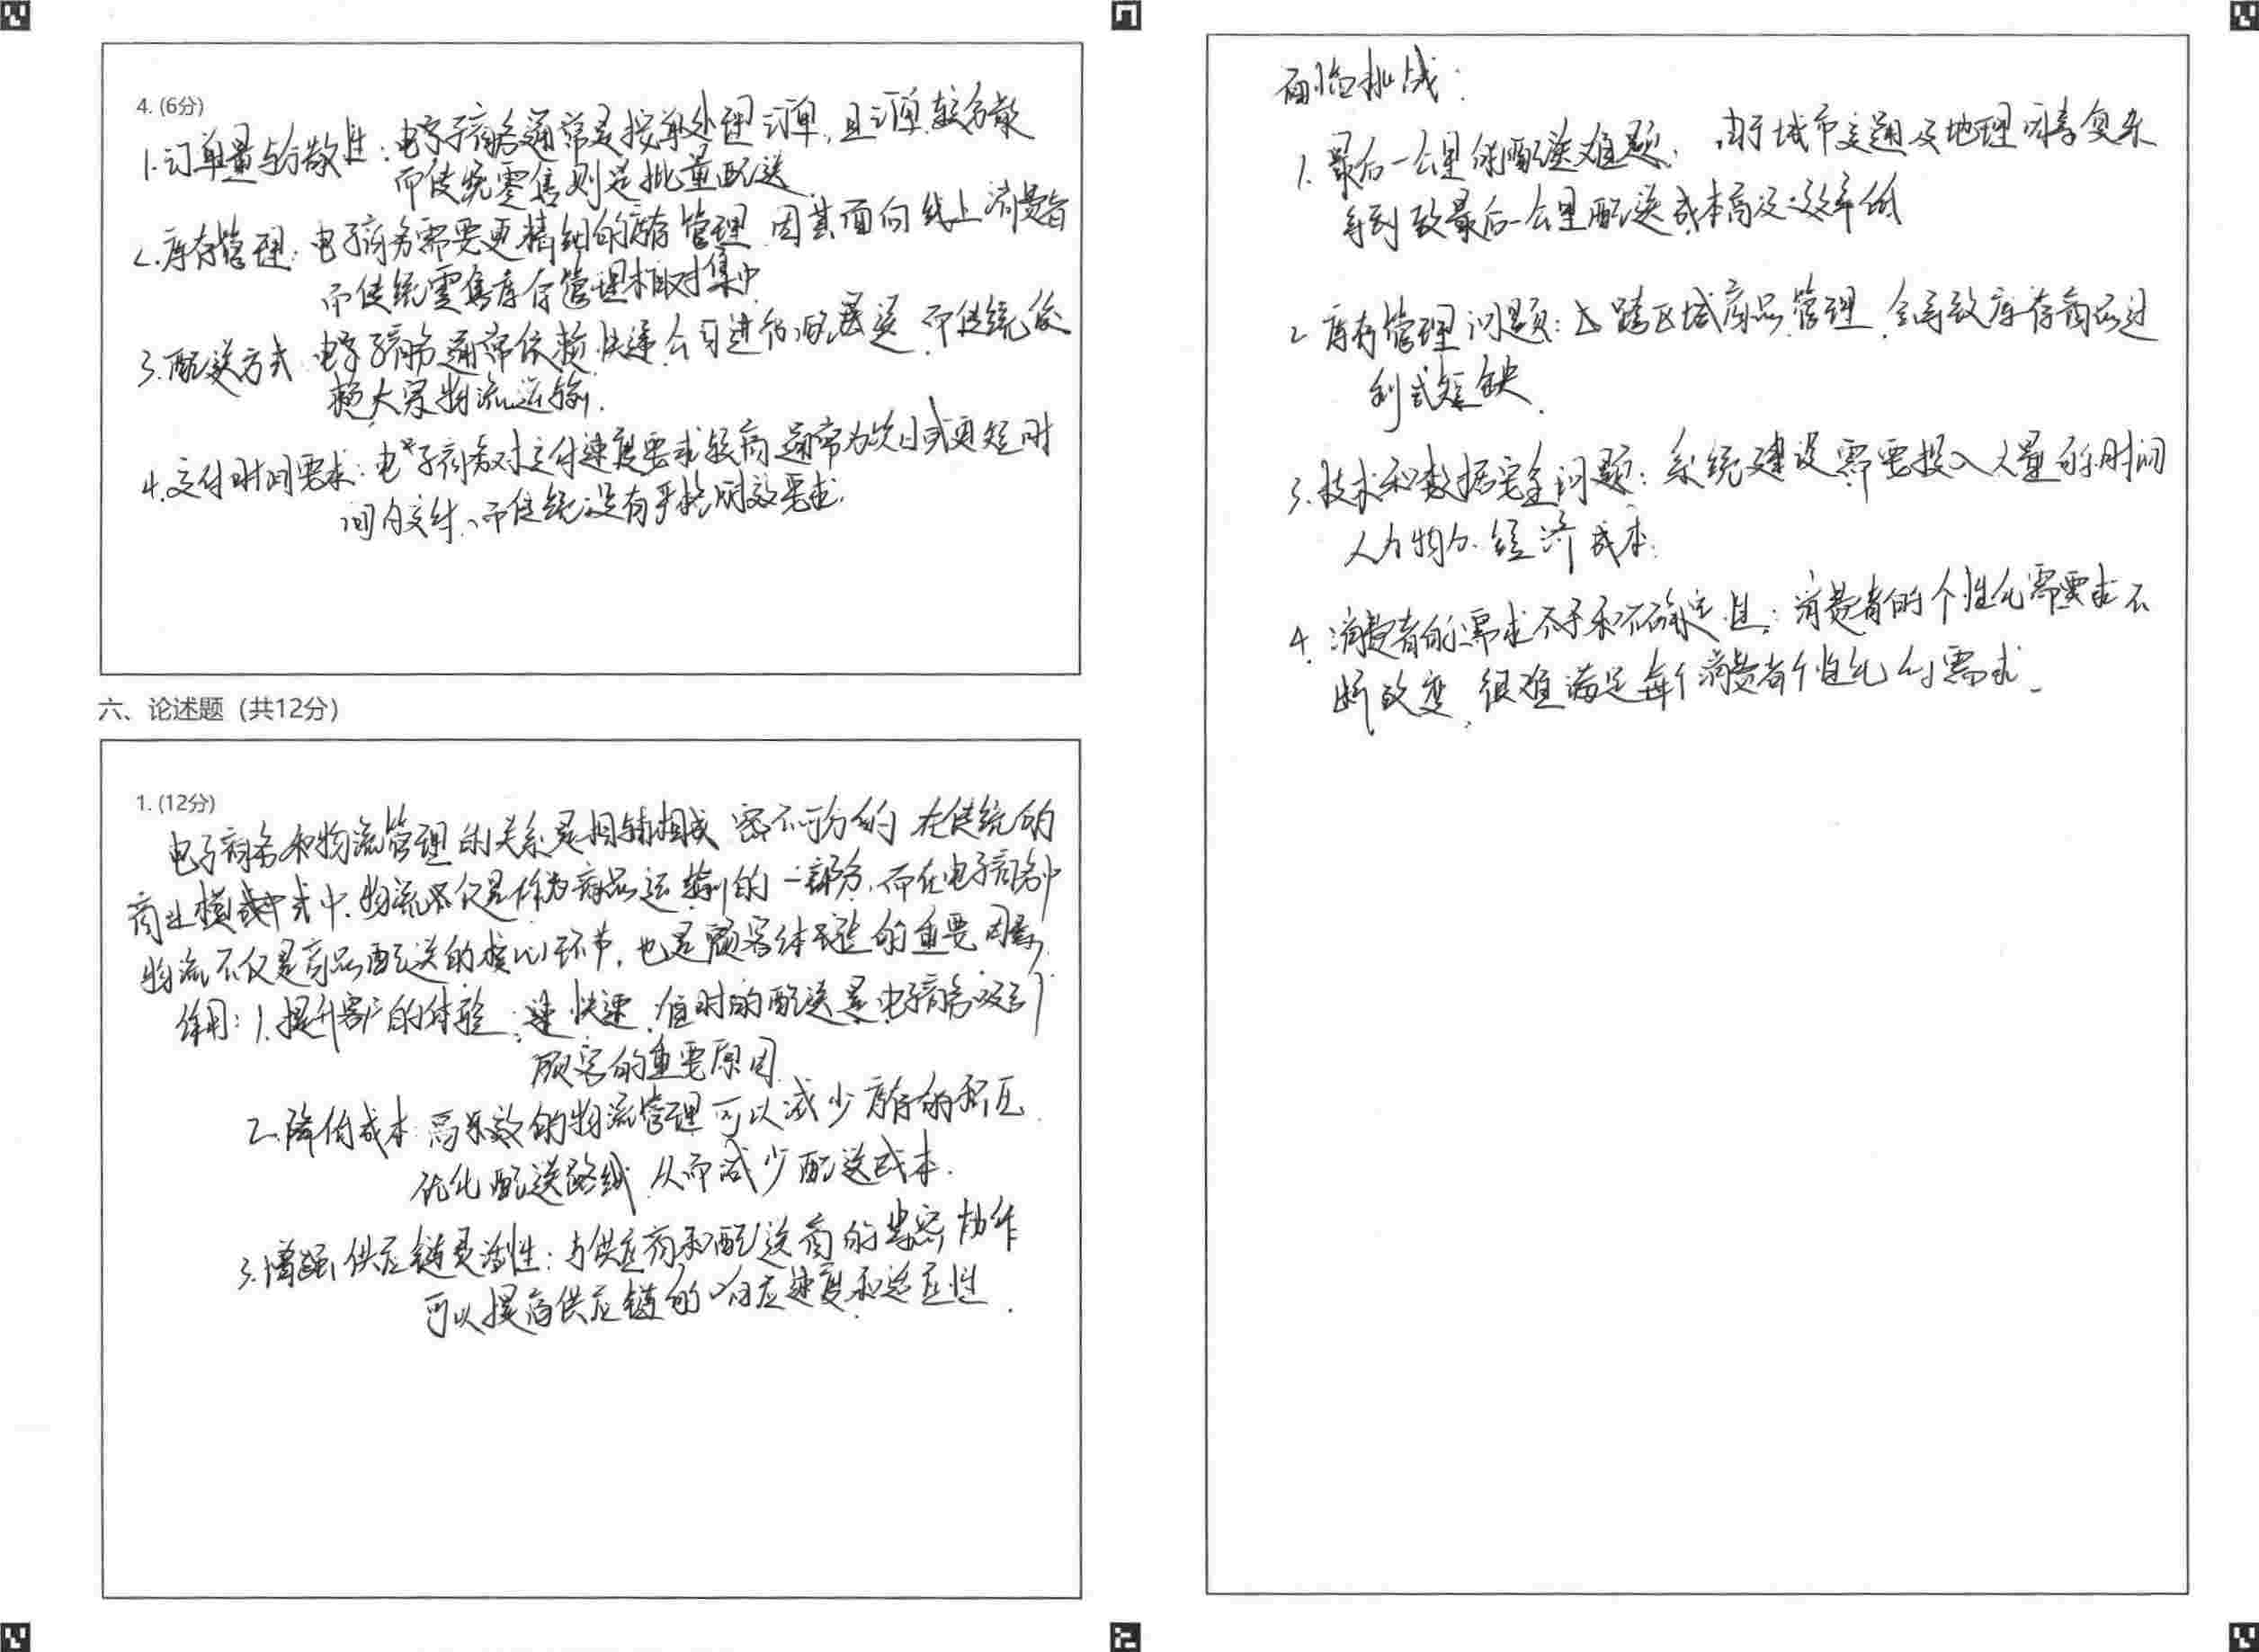 4. (6分)
1. 订单量与分散性：电子商务通常是按单处理订单，且订单较分散
而传统零售则是批量配送
2. 库存管理：电子商务需要更精细的库存管理，因其面向线上消费者
而传统零售库存管理相对集中
3. 配送方式：电子商务通常依赖快递公司进行配送，而传统依
赖大宗物流运输.
4. 交付时间要求：电子商务对交付速度要求较高，通常为次日或更短时
间内交付，而传统没有严格时效要求.
六、论述题（共12分）
1. (12分)
电子商务和物流管理的关系是相辅相成 密不可分的 在传统的
商业模式中，物流仅是作为商品运输的一部分，而在电子商务中
物流不仅是商品配送的核心环节，也是顾客体验的重要因素，
作用：1. 提升客户的体验：快速，准时的配送是电子商务吸引
顾客的重要原因.
2. 降低成本：高效的物流管理可以减少库存的积压
优化配送路线，从而减少配送成本.
3. 增强供应链灵活性：与供应商和配送商的紧密协作
可以提高供应链的响应速度和适应性.
面临挑战：
1. 最后一公里的配送难题：由于城市交通及地理因素复杂
导致最后一公里配送成本高及效率低
2. 库存管理问题：跨区域商品管理，会导致库存商品过
剩或短缺.
3. 技术和数据安全问题：系统建设需要投入大量的时间
人力物力、经济成本.
4. 消费者的需求和不确定性：消费者的个性化需求不
断改变，很难满足每个消费者个性化的需求.